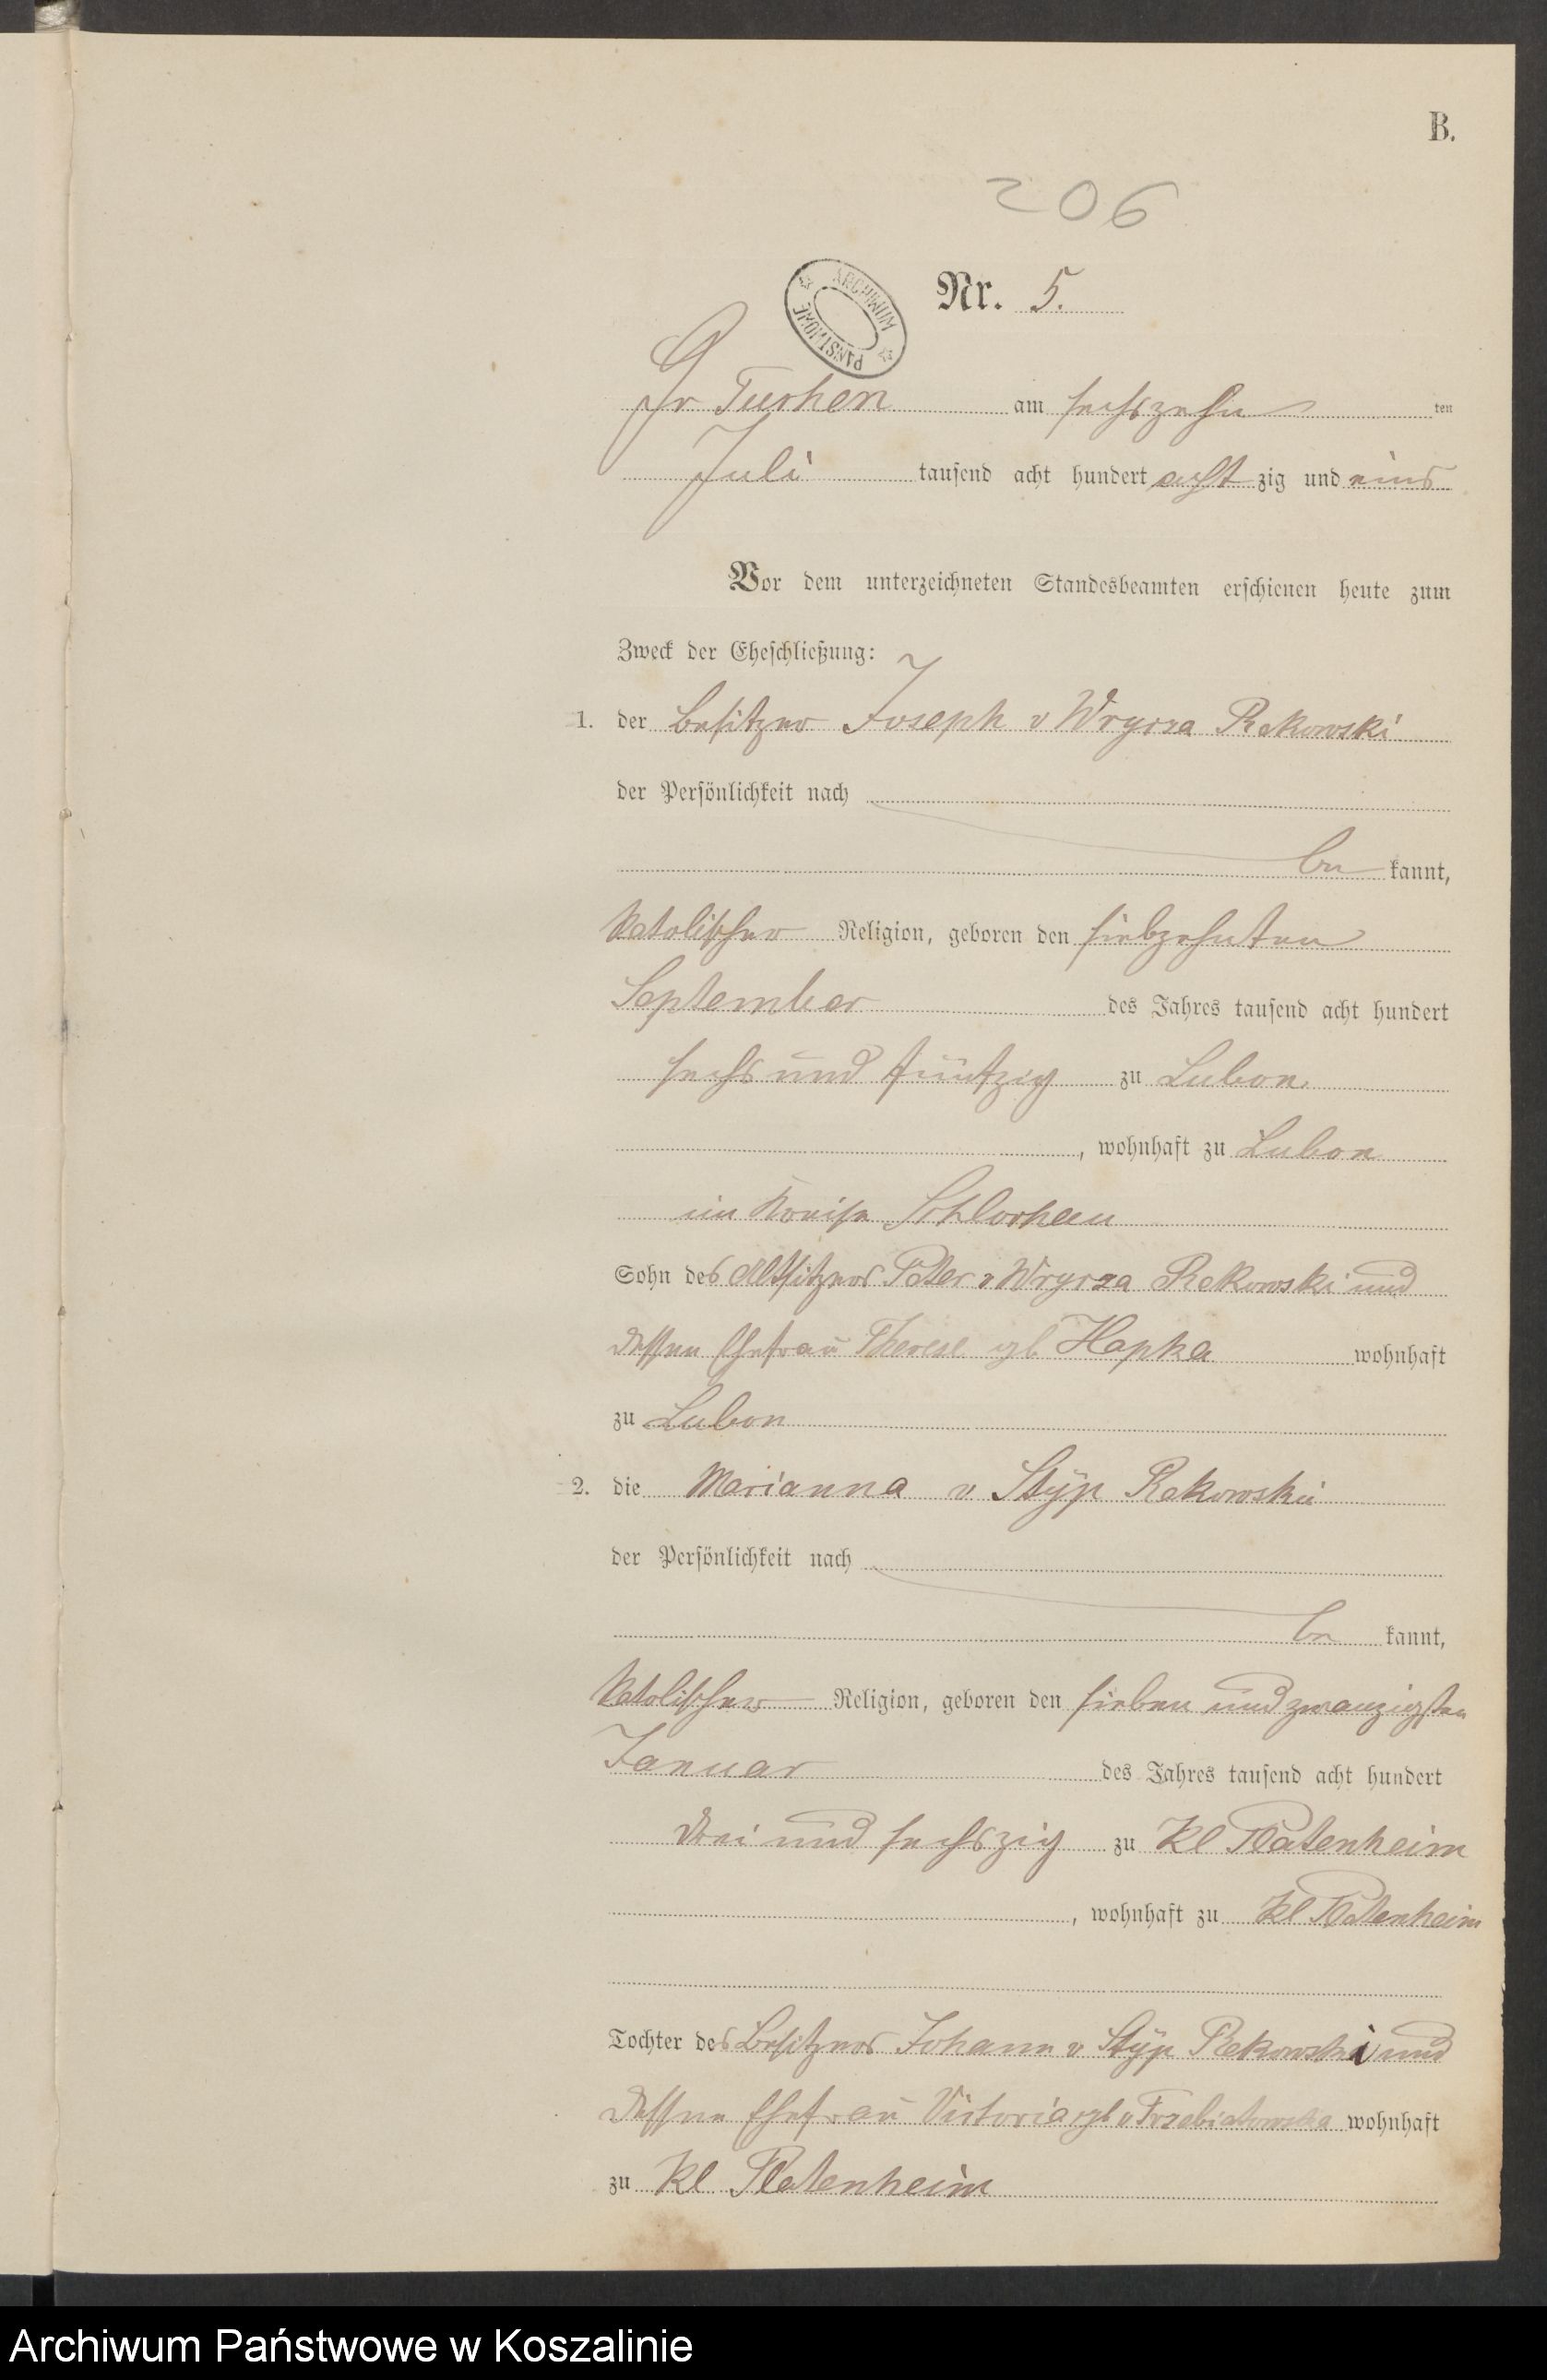 B.
206
ARCHIWUM PAŃSTWOWE
Nr. 5.
Gr Tuchen am sechszehn ten
Juli tausend acht hundert acht zig und eins
Vor dem unterzeichneten Standesbeamten erschienen heute zum
Zweck der Eheschließung:
1. der Besitzer Joseph v Wrycza Rekowski
der Persönlichkeit nach
be kannt,
katolischer Religion, geboren den siebzehnten
September des Jahres tausend acht hundert
sechs und fünfzig zu Lubon
, wohnhaft zu Lubon
im Kreise Schlochau
Sohn des Altsitzers Peter v Wrycza Rekowski und
dessen Ehefrau Therese gb Hapka wohnhaft
zu Lubon
2. die Marianna v Styp Rekowski
der Persönlichkeit nach
be kannt,
katolischer Religion, geboren den sieben und zwanzigsten
Januar des Jahres tausend acht hundert
drei und sechszig zu Kl Platenheim
, wohnhaft zu Kl Platenheim
Tochter des Besitzers Johann v Styp Rekowski und
dessen Ehefrau Victoria gb v Trzebiatowska wohnhaft
zu Kl Platenheim
Archiwum Państwowe w Koszalinie